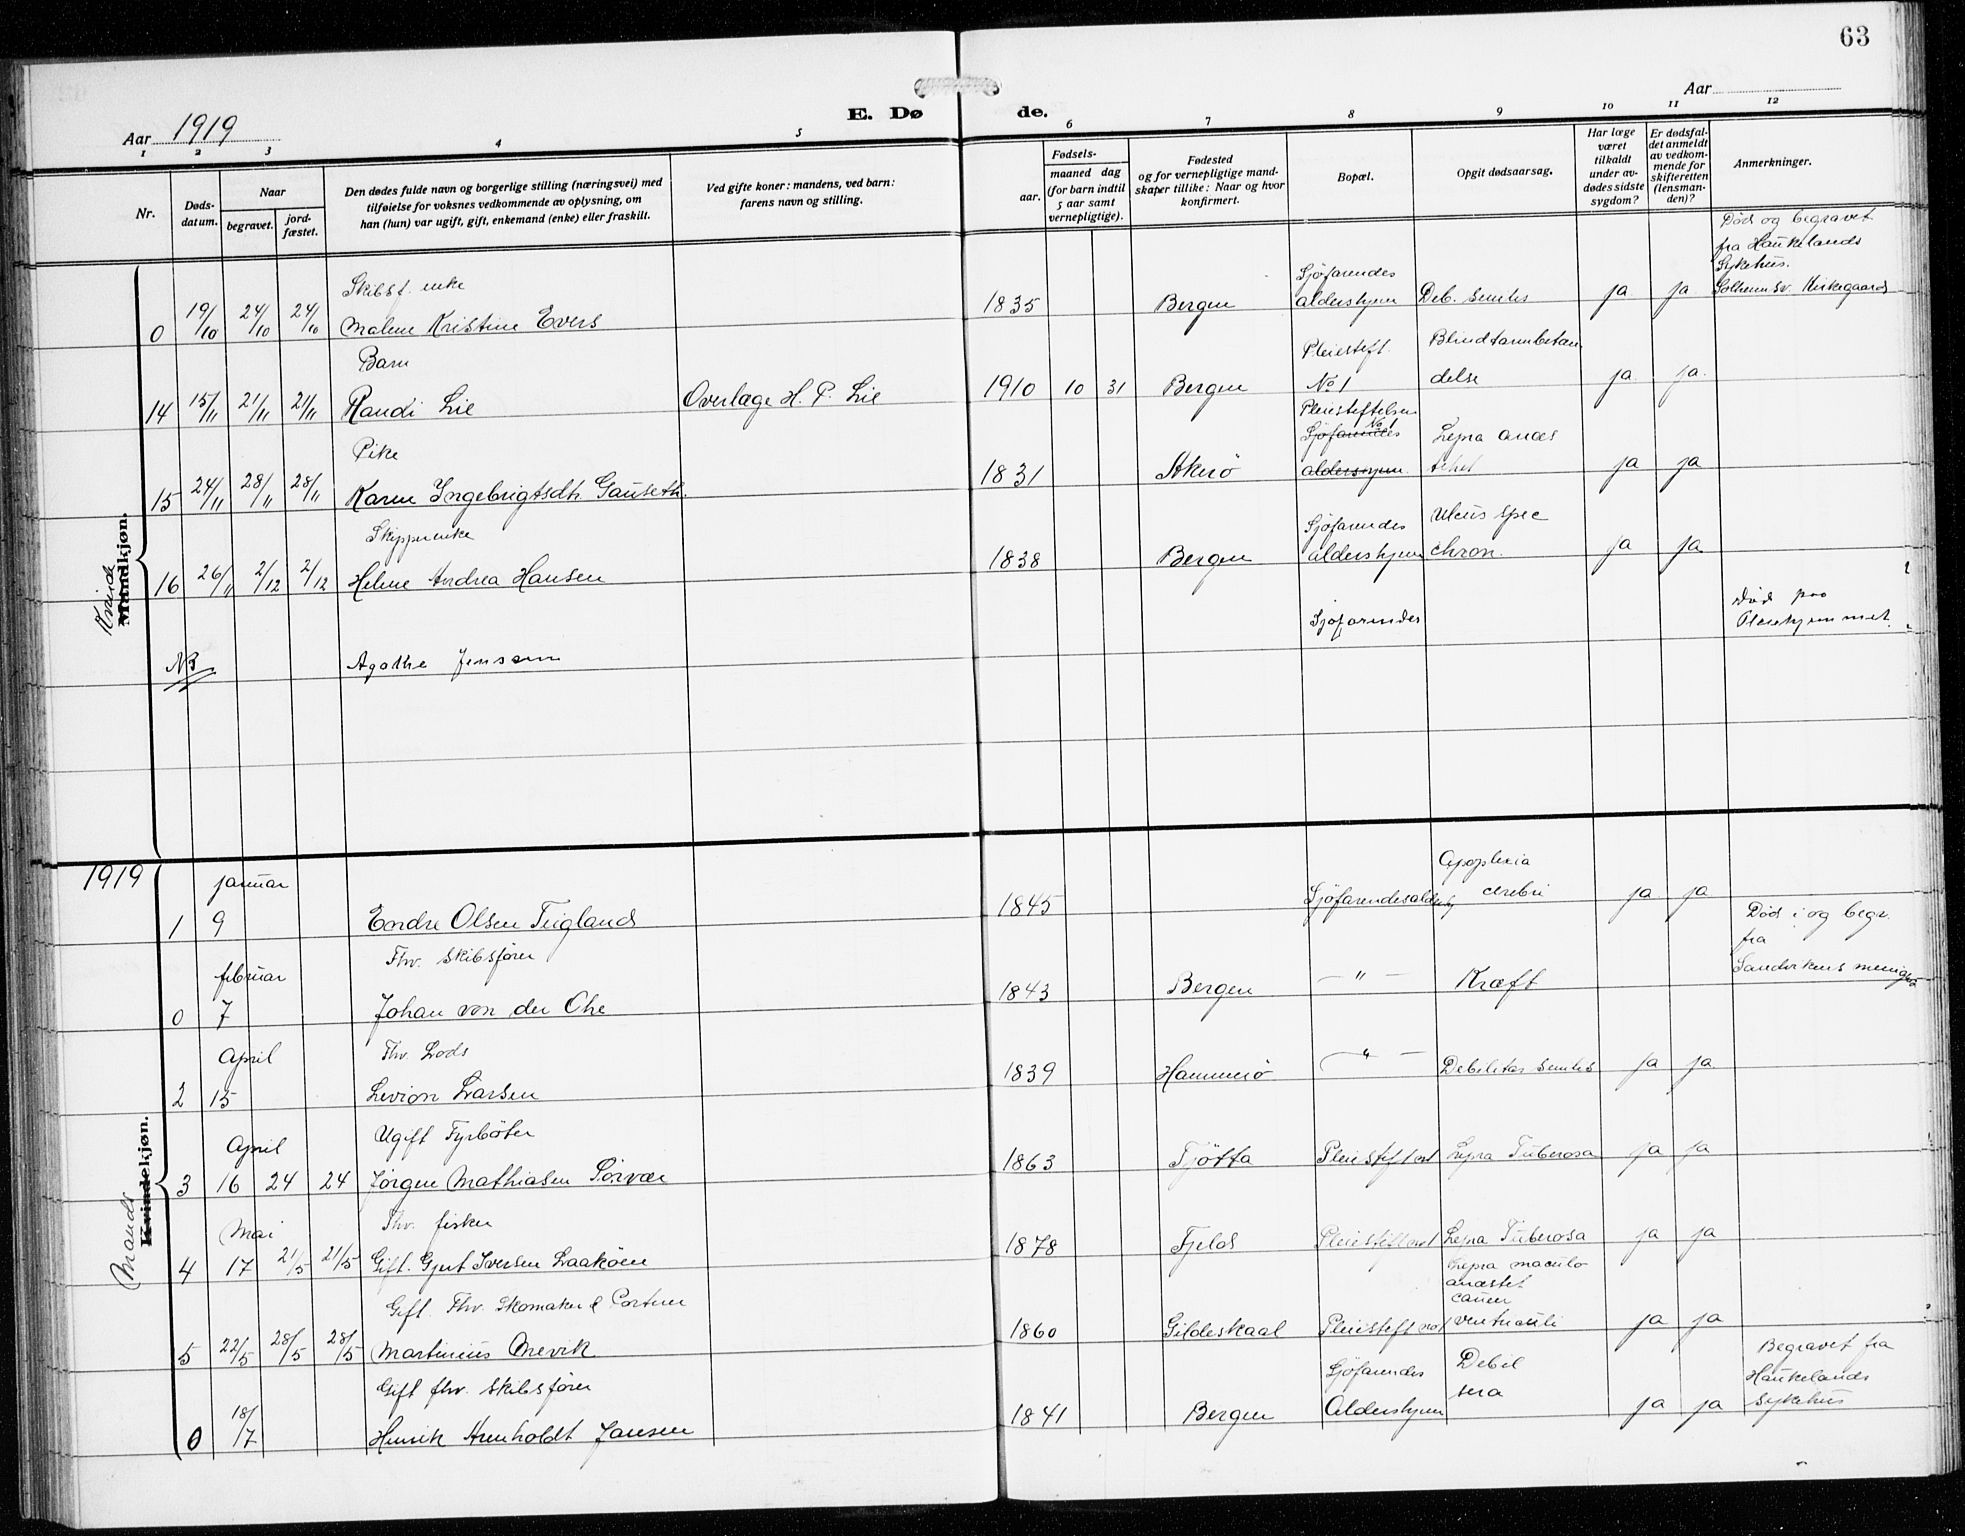 63
Aar 1919
E. Dø de.
Aar
1 2 3 4 5 6 7 8 9 10 11 12
Nr.
Døds-
datum.
Naar
begravet.
jord-
fæstet.
Den dødes fulde navn og borgerlige stilling (næringsvei) med
tilføielse for voksnes vedkommende av oplysning, om
han (hun) var ugift, gift, enkemand (enke) eller fraskilt.
Ved gifte koner: mandens, ved barn:
farens navn og stilling.
Fødsels-
aar.
maaned dag
(for barn indtil
5 aar samt
vernepligtige).
Fødested
og for vernepligtige mand-
skaper tillike: Naar og hvor
konfirmert.
Bopæl.
Opgit dødsaarsag.
Har læge
været
tilkaldt
under av-
dødes sidste
sygdom?
Er dødsfal-
det anmeldt
av vedkom-
mende for
skifteretten
(lensman-
den)?
Anmerkninger.
Kvinde
Mandkjøn.
Skibsf. enke
0 19/10 24/10 24/10 Malene Kristine Evers 1835 Bergen
Sjöfarendes
aldershjem
Deb. senilis ja ja
Død og begravet
fra Haukelands
Sykehus.
Solheimsv. Kirkegaard
Barn
14 15/11 21/11 21/11 Randi Lie Overlæge H. P. Lie 1910 10 31 Bergen
Pleiestift.
No 1
Blindtarmbetæn
delse ja ja
Pike
15 24/11 28/11 28/11 Karen Ingebrigtsdtr Gauseth. 1831 Akerö
Pleiestiftelsen
No 1
Sjöfarendes
aldershjem.
Lepra anæs
thet ja ja
Skipperenke
16 26/11 2/12 2/12 Helene Andrea Hansen 1838 Bergen
Sjöfarendes
aldershjem
Ulcus spec
chron. ja ja
NB Agathe Jenssen
Sjöfarendes
Død paa
Pleiehjemmet.
1919
Mands
Kvindekjøn.
januar
1 9 Endre Olsen Teigland 1845 Sjöfarendesaldershj
Apoplexia
cerebri ja ja
februar
Fhv. skibsfører
0 7 Johan von der Ohe 1843 Bergen — " — Kræft
Død i og begr.
fra
Sandvikens menighet
April
Fhv. Lods
2 15 Levion Larsen 1839 Hammerö — " — Debilitas senilis ja ja
April
Ugift Fyrböter
3 16 24 24 Jörgen Mathiasen Sörvær 1863 Tjötta Pleiestift no 1 Lepra Tuberosa ja ja
Mai
Fhv. fisker
4 17 21/5 21/5 Gift. Gjert Iversen Laaköen 1878 Fjeld Pleiestift no 1 Lepra Tuberosa ja ja
Gift. Fhv. Skomaker & Portner
5 22/5 28/5 28/5 Martinius Mevik 1860 Gildeskaal Pleiestift no 1
Lepra maculo
anæstet
cancer
ventriculi ja ja
Gift fhv. skibsfører
0 18/7 Henrik Arenholdt Jansen 1841 Bergen
Sjöfarendes
Aldershjem
Debil
sen ja ja
Begravet fra
Haukelands
sykehus